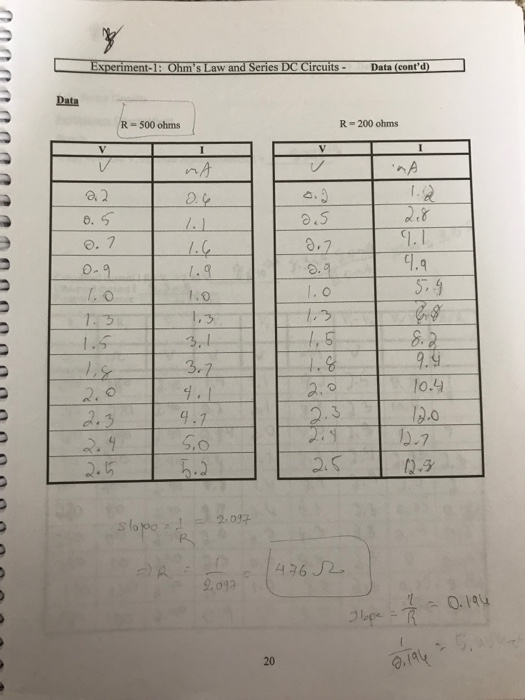 Experiment-1: Ohm's Law and Series DC Circuits - Data (cont'd)
Data
R = 500 ohms R = 200 ohms
V I V I
V mA V mA
0.2 0.6 0.2 1.2
0.5 1.1 0.5 2.8
0.7 1.6 0.7 4.1
0.9 1.9 0.9 4.9
1.0 1.0 1.0 5.4
1.3 1.3 1.3 6.8
1.5 3.1 1.5 8.2
1.8 3.7 1.8 9.4
2.0 4.1 2.0 10.4
2.3 4.7 2.3 12.0
2.4 5.0 2.4 12.7
2.5 5.2 2.5 12.8
slope = 1/R = 2.097
=> R = 1/2.097 = 476 Ω
slope = 1/R = 0.194
1/0.194 = 5.
20